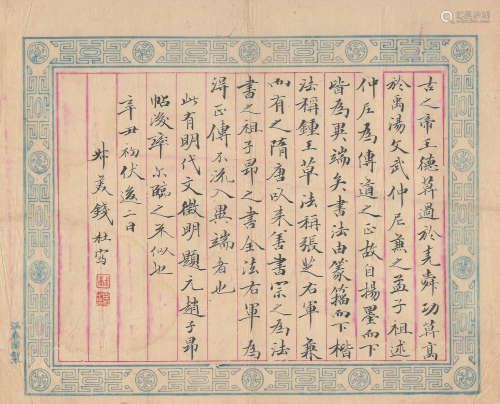 古之帝王德莫過於堯舜功莫高
於禹湯文武仲尼兼之孟子祖述
仲尼為傳道之正故自揚墨而下
皆為異端矣書法由篆籀而下楷
法稱鍾王草法稱張芝右軍兼
而有之隋唐以來善書宗之為法
書之祖子昂之書全法右軍為
得正傳不流入異端者也
此有明代文徵明題元趙子昂
帖後率尔臨之似也
辛丑初伏後二日
叔美錢杜寫